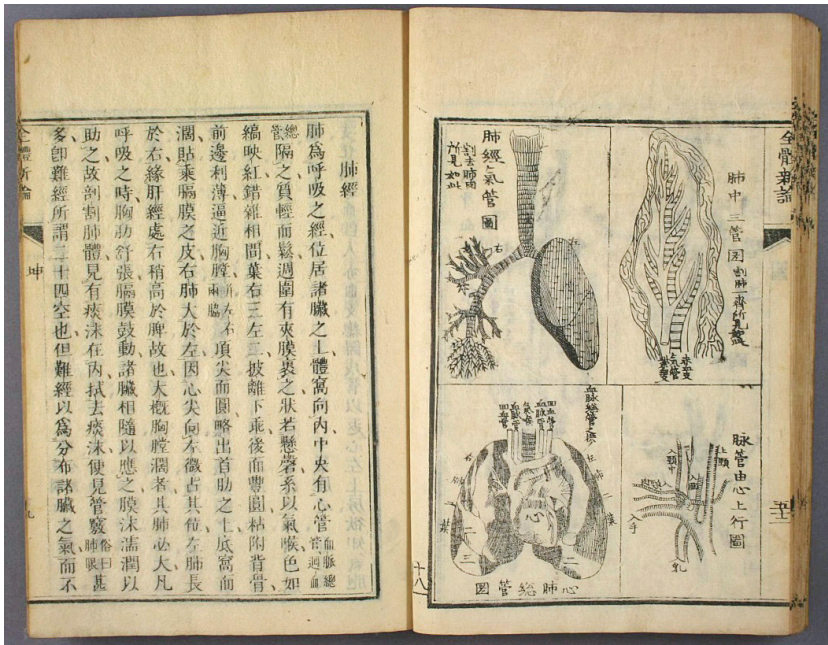 全體新論
肺中三管圖
肺經氣管圖
割去肺肉
所見如此
左
右
脉管由心上行圖
入手
乳
血脉總管
氣管
心肺總管圖
二
三
二
十八
肺經
肺爲呼吸之經、位居諸臟之上、體窩向内、中央有心管血脈總管迴血
總管隔之、質輕而鬆、週圍有夾膜裹之、狀若懸磬、系以氣喉、色如
縞映紅、錯雜相間、葉右三左二、披離下乖、後面豐圓、粘附背骨、
前邊利薄、逼近胸膛兩脇、項尖而圓、略出首肋之上、底窩而
濶、貼乘膈膜之皮、右肺大於左、因心尖向左、微占其位、左肺長
於右、緣肝經處右、稍高於脾故也、大概胸膛濶者、其肺必大、凡
呼吸之時、胸肋舒張、膈膜鼓動、諸臟相隨以應之、膜沫濡潤以
助之、故剖割肺體、見有痰沫在內、拭去痰沫、便見管竅俗曰肺眼甚
多、卽難經所謂二十四空也、但難經以爲分布諸臟之氣、而不
全體新論
坤
九